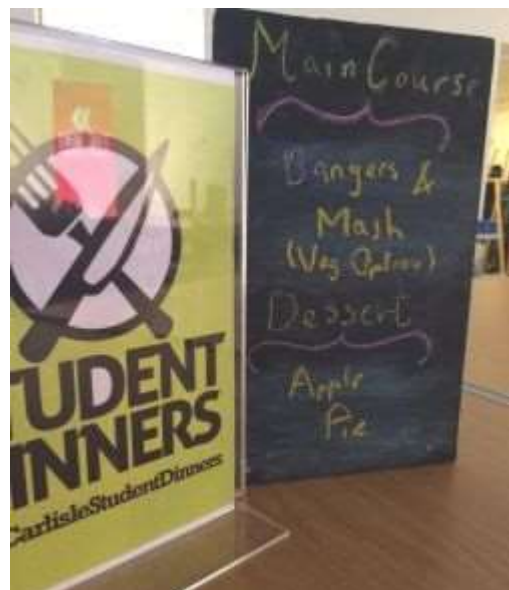 TUDENT
INNERS
CarlisleStudentDinners
Main Course
Bangers &
Mash
(Veg Option)
Dessert
Apple
Pie